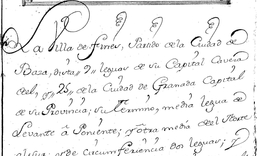 La Villa de Fines, Partido de la Ciudad de
Baza, dista 9 leguas de su Capital Caveza
de el, y 25 de la Ciudad de Granada Capital
de su Provincia; su termino, media legua de
Levante a Poniente; y otra media del Norte
de circumferiencia dos leguas;